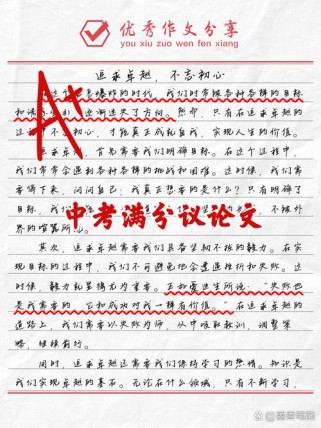 优秀作文分享
you xiu zuo wen fen xiang
追求卓越，不忘初心
A+
爆炸的时代，我们时常被各种各样的目标
逐渐迷失了方向。然而，只有在追求卓越的
不忘初心，才能真正成就自我，实现人生的价值。
追求卓越，首先需要我们明确目标。在这个过程中，
我们常常会遇到各种各样的挑战和困难。这时候，我们需
要停下来，问问自己：我真正想要的是什么？只有明确了
目标，我们
中考满分议论文
不被外
界的喧嚣所
其次，追求卓越需要我们具备坚韧不拔的毅力。在实
现目标的过程中，我们不可避免地会遭遇挫折和失败。这
时候，毅力就显得尤为重要。正如爱迪生所说：“失败也
是我需要的，它和成功对我一样有价值。”在追求卓越的
道路上，我们需要以失败为师，从中吸取教训，调整策
略，继续前行。
同时，追求卓越还需要我们保持学习的热情。知识是
我们实现卓越的基石。无论在什么领域，只有不断学习，